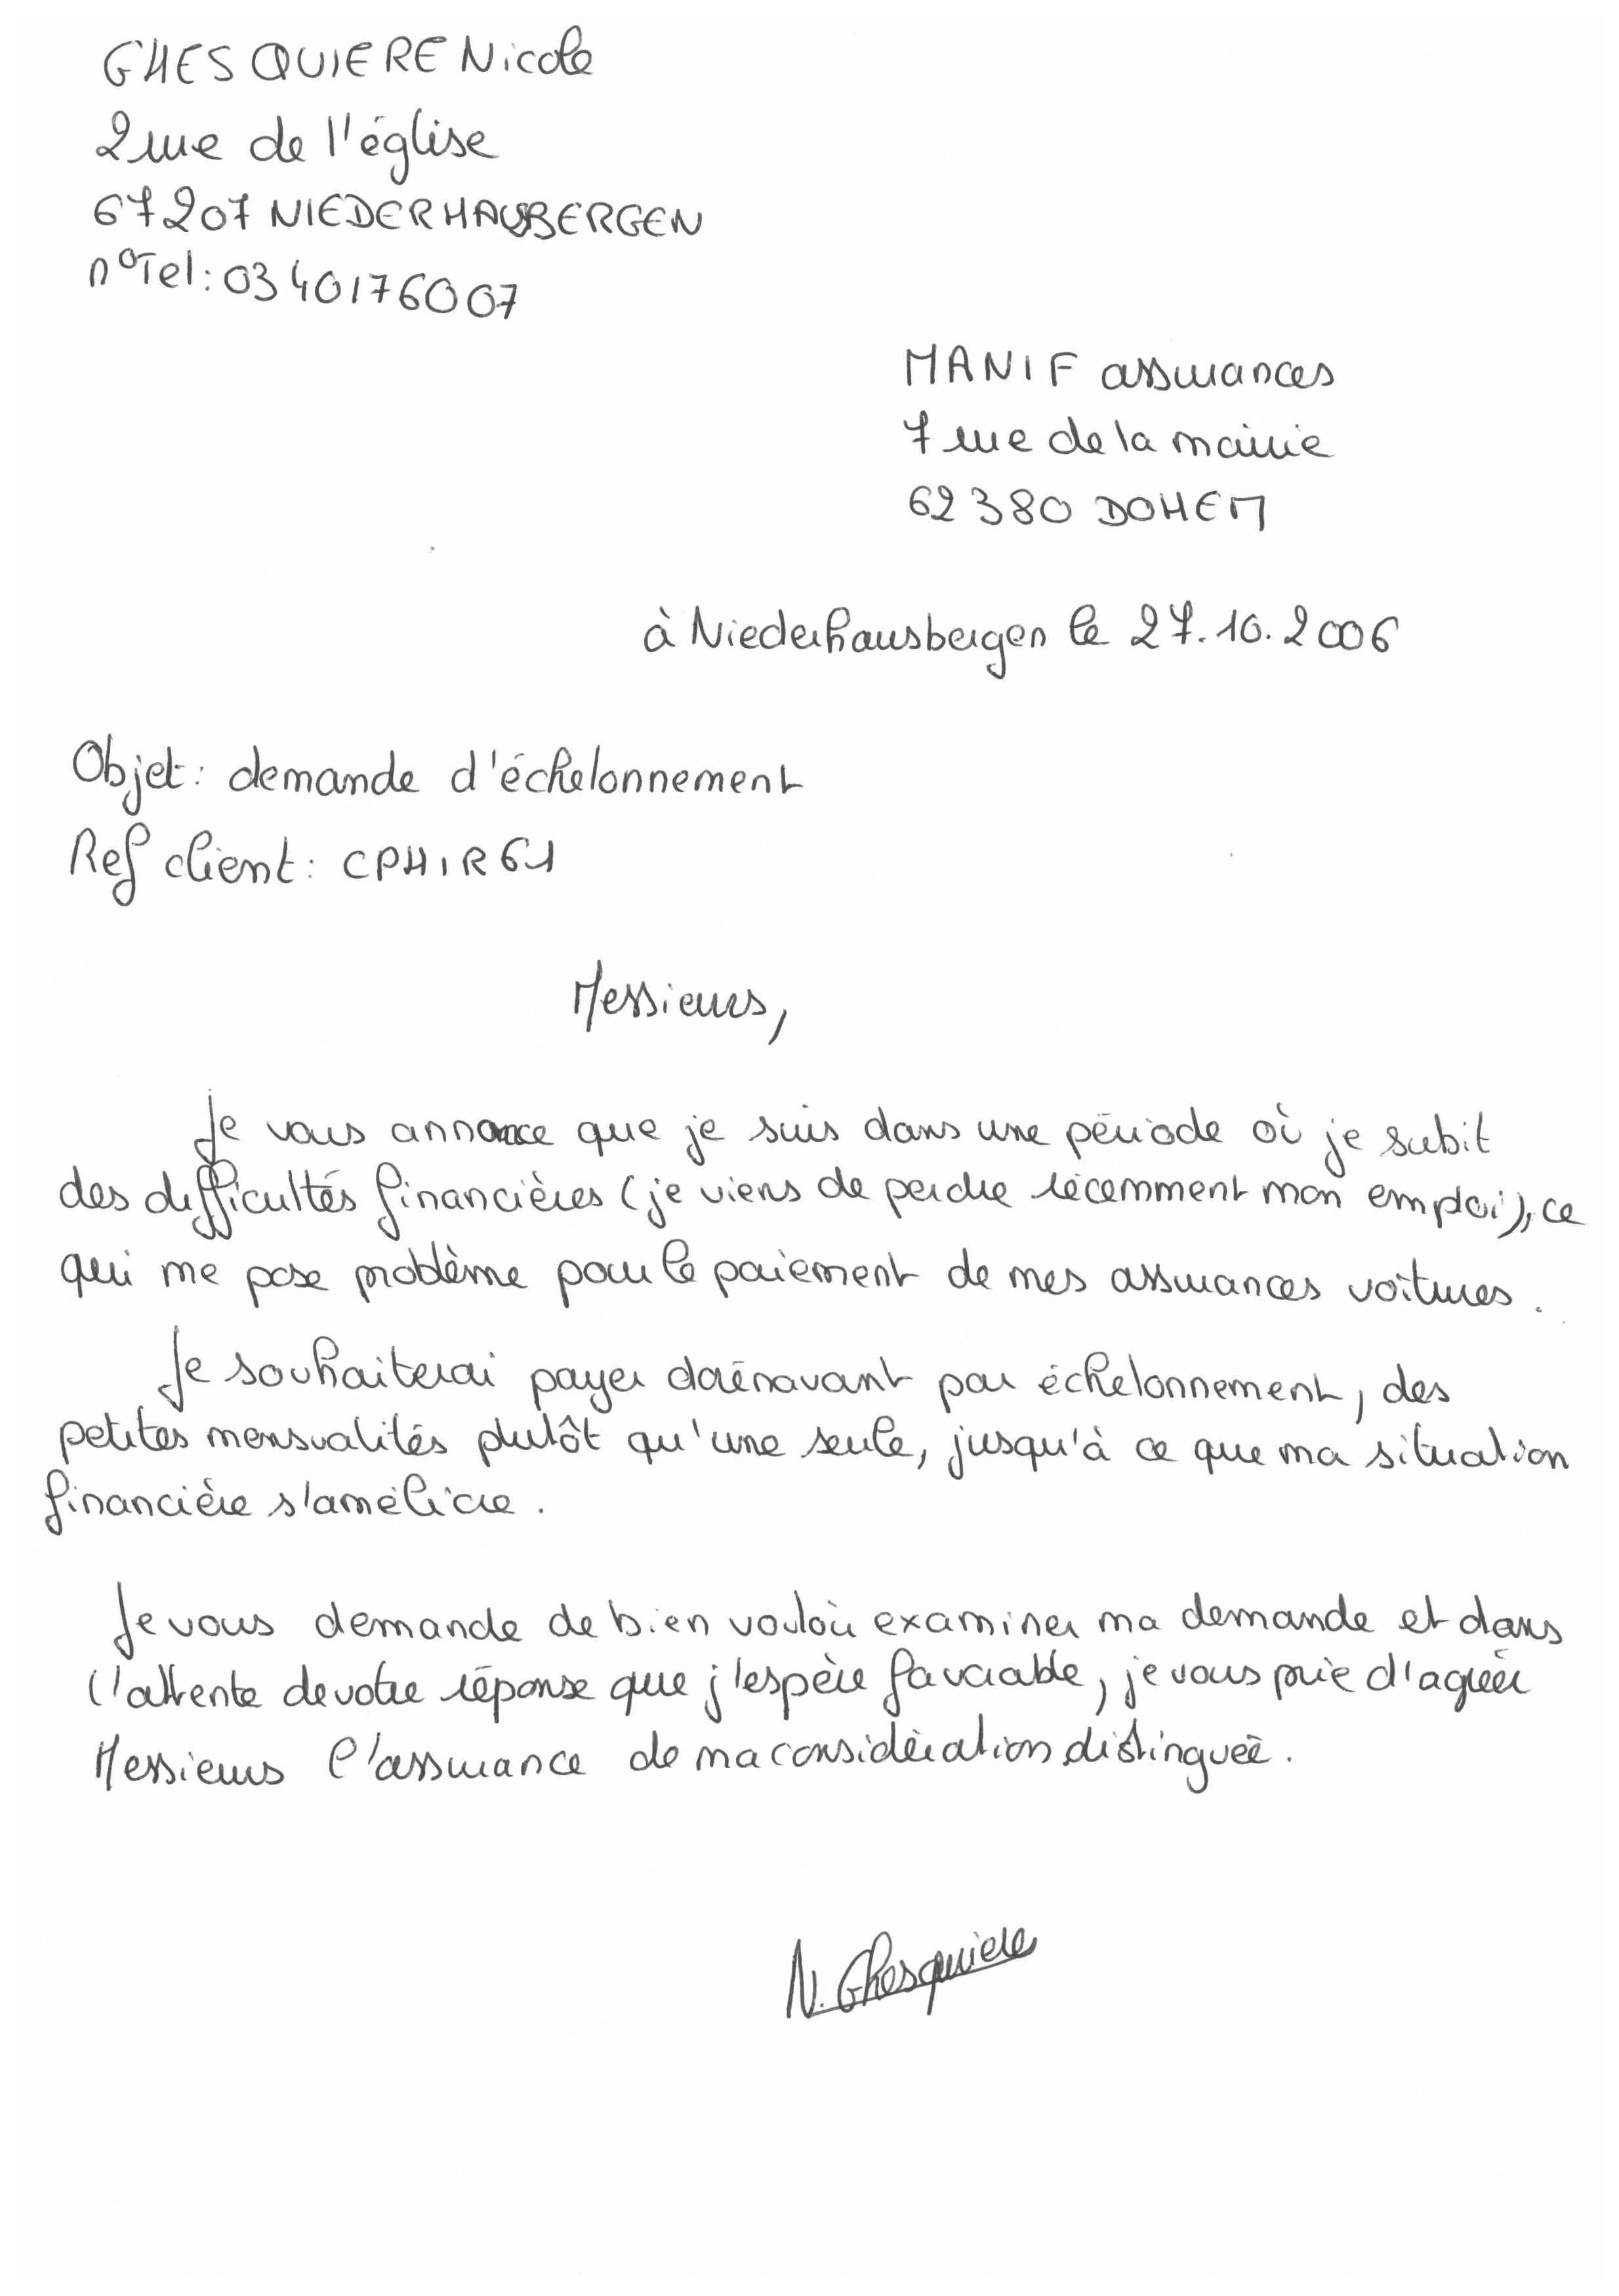 GHESQUIERE Nicole
2 rue de l'église
67207 NIEDERHAUSBERGEN
n°Tel: 0340176007
MANIF assurances
7 rue de la mairie
62380 DOHEM
à Niederhausbergen le 27.10.2006
Objet: demande d'échelonnement
Ref client: CPHIR61
Messieurs,
Je vous annonce que je suis dans une période où je subit
des difficultés financières (je viens de perdre récemment mon emploi), ce
qui me pose problème pour le paiement de mes assurances voitures.
Je souhaiterai payer dorénavant par échelonnement, des
petites mensualités plutôt qu'une seule, jusqu'à ce que ma situation
financière s'améliore.
Je vous demande de bien vouloir examiner ma demande et dans
l'attente de votre réponse que j'espère favorable, je vous prie d'agréer
Messieurs l'assurance de ma considération distinguée.
N. Ghesquiere